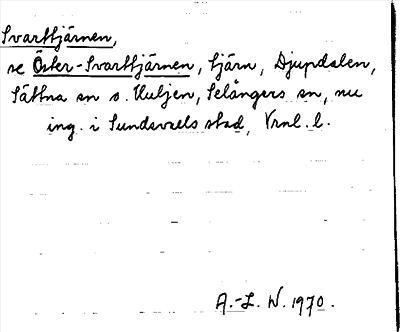 Svarttjärnen,
se Öster-Svarttjärnen, tjärn, Djupdalen,
Sättna sn o. Huljen, Selångers sn, nu
ing. i Sundsvalls stad, Vrnl. l.
A.-L. W. 1970.